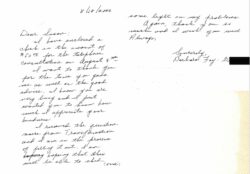 8/20/2002
Dear Susan,
I have enclosed a
check in the amount of
for the telephone
consultation on August 9th.
I want to thank you
for the time you gave
me as well as the good
advice. I know you are
very busy and I just
wanted you to know how
much I appreciate your
kindness.
I received the question
naire from Transformation
and I am in the process
of filling it out. I am
hoping that they
will be able to shed
(over)
some light on my problems.
Again, thank you so
much and I wish you well
Always,
Sincerely,
Barbara